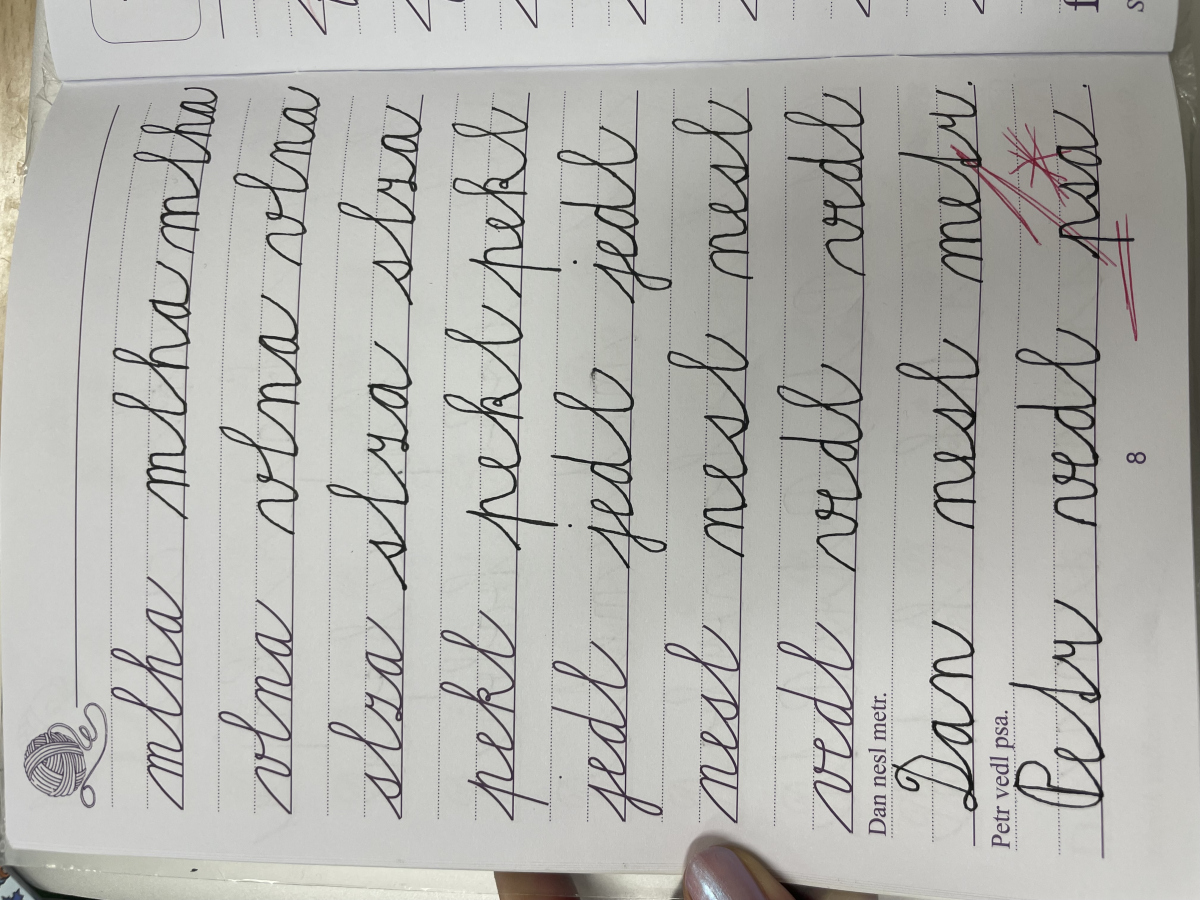 mlha mlha mlha mlha
vlna vlna vlna vlna
slza slza slza slza
pekl pekl pekl pekl
jedl jedl jedl jedl
nesl nesl nesl nesl
vedl vedl vedl vedl
Dan nesl metr.
Dan nesl metr.
Petr vedl psa.
Petr vedl psa.
8